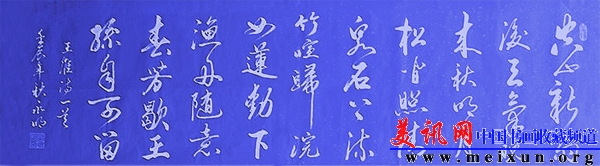 空山新雨
後天氣晚
来秋明月
松間照清
泉石上流
竹喧歸浣
女蓮動下
漁舟随意
春芳歇王
孫自可留
王維詩一首
美讯网
中国书画收藏频道
www.meixun.org